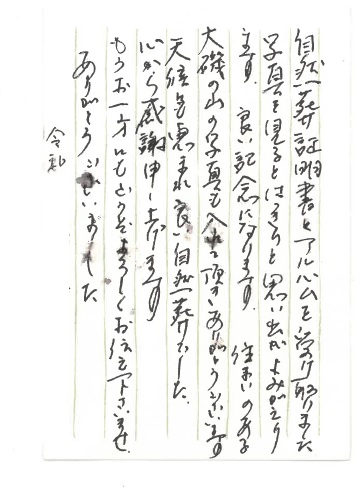 自然葬証明書とアルバムを受け取りました
写真を見るとはっきりと思い出がよみがえり
ます。良い記念になります。住まいのある
大磯の山の写真も入れて頂きありがとうございます
天候も恵まれ良い自然葬でした。
心から感謝申し上げます
もうお一方にもどうぞよろしくお伝え下さいませ。
ありがとうございました